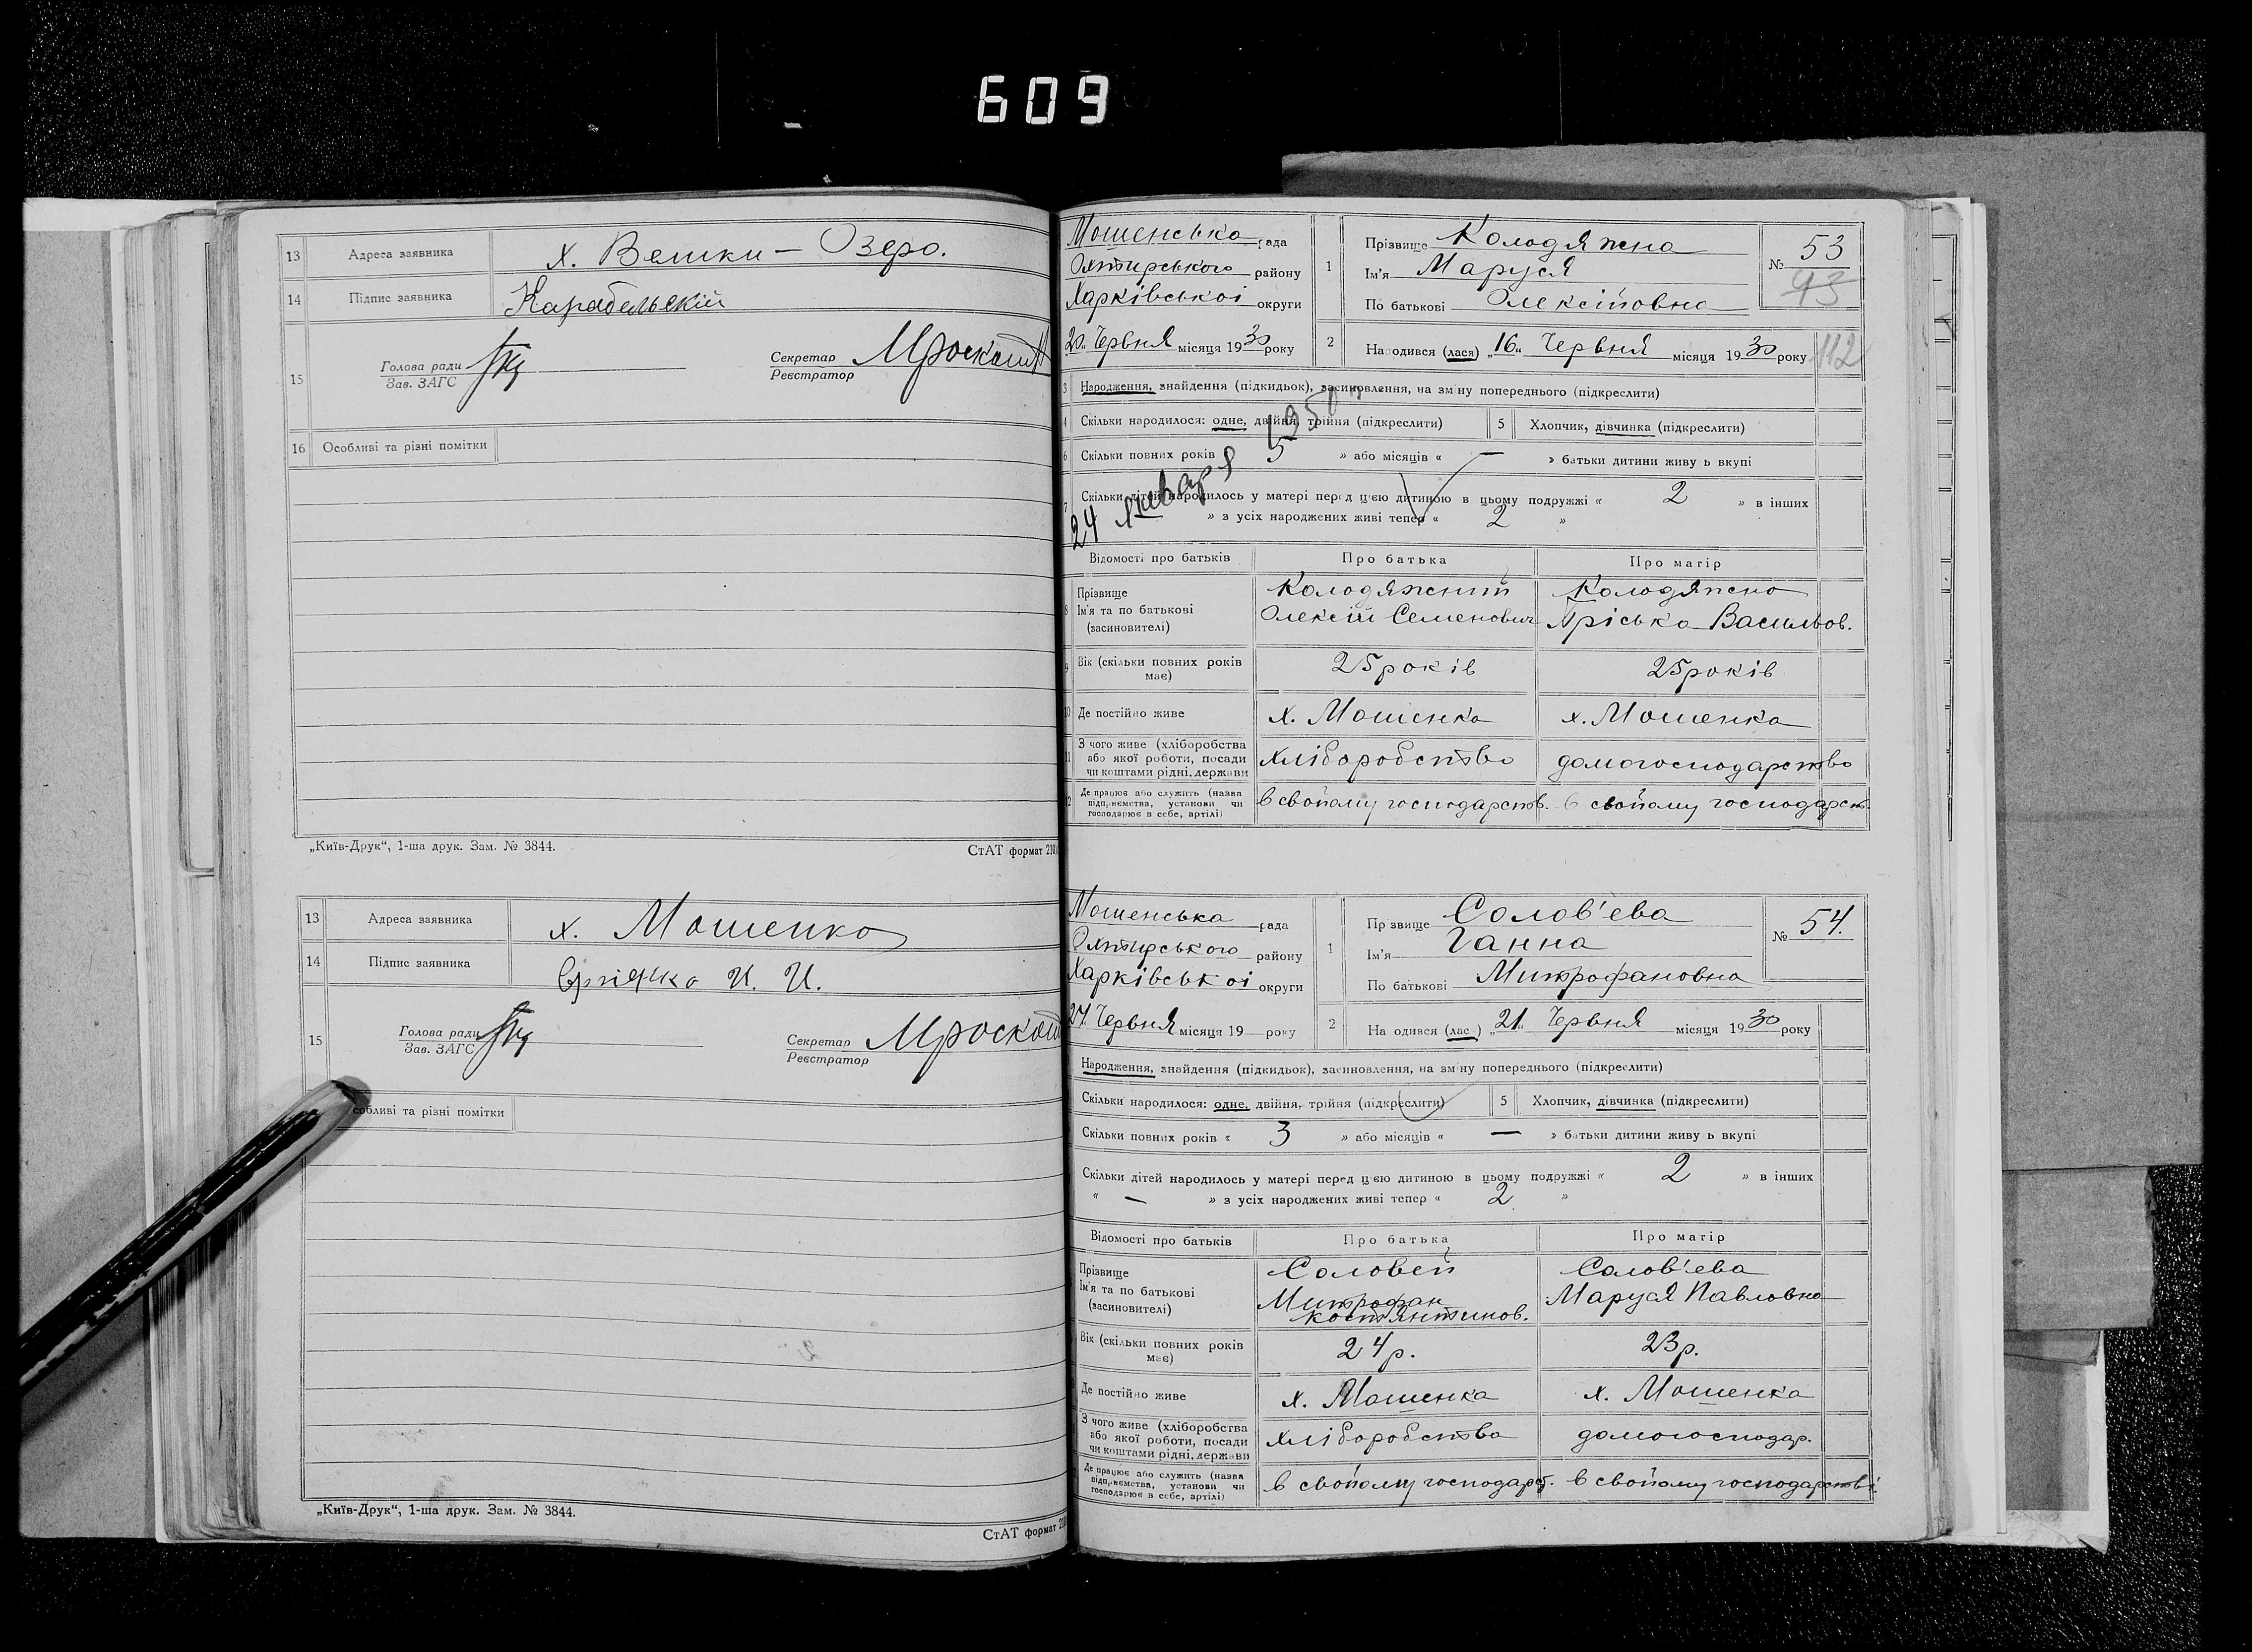 609
13 Адреса заявника х. Велики – Озеро.
14 Підпис заявника Карабельскій
15 Голова ради
Зав. ЗАГС
Секретар
Реєстратор
16 Особливі та різні помітки
„Київ-Друк“, 1-ша друк. Зам. № 3844.
СтАТ формат
13 Адреса заявника х. Мошенко
14 Підпис заявника И. И.
15 Голова ради
Зав. ЗАГС
Секретар
Реєстратор
собливі та різні помітки
„Київ-Друк“, 1-ша друк. Зам. № 3844.
СтАТ формат
Мошенська рада
району
Харківськоі округи
20. Червня місяця 1930 року
1 Прізвище Колодяжна
Ім'я Маруся
По батькові Олексійовна
№ 53
93
2 Народився (лася) „16“ Червня місяця 1930 року
112
3 Народження, знайдення (підкидьок), засиновлення, на зміну попереднього (підкреслити)
4 Скільки народилося: одне, двійня, трійня (підкреслити) 5 Хлопчик, дівчинка (підкреслити)
6 Скільки повних років 5 » або місяців « — » батьки дитини живуть вкупі
7 Скільки дітей народилось у матері перед цією дитиною в цьому подружжі « 2 » в інших
» з усіх народжених живі тепер « 2 »
24 января 1950
Відомості про батьків Про батька Про матір
8 Прізвище Колодяжний Колодяжно
Ім'я та по батькові Олексій Семенович Пріська Васильов.
(засиновителі)
9 Вік (скільки повних років 25 років 25 років
має)
10 Де постійно живе х. Мошенка х. Мошенка
11 З чого живе (хліборобства
або якої роботи, посади хліборобство домогосподарство
чи коштами рідні, держави
12 Де працює або служить (назва
підприємства, установи чи в свойому господарств. в свойому господарств.
господарює в себе, артілі)
Мошенська рада
району
Харківськоі округи
24. Червня місяця 19 року
1 Прізвище Солов'ева
Ім'я Ганна
По батькові Митрофановна
№ 54.
2 На одився (лас ) „21“ Червня місяця 1930 року
Народження, знайдення (підкидьок), засиновлення, на зміну попереднього (підкреслити)
Скільки народилося: одне, двійня, трійня (підкреслити) 5 Хлопчик, дівчинка (підкреслити)
Скільки повних років « 3 » або місяців « — » батьки дитини живу ь вкупі
Скільки дітей народилось у матері перед цією дитиною в цьому подружжі « 2 » в інших
« — » з усіх народжених живі тепер « 2. »
Відомості про батьків Про батька Про матір
Прізвище Соловей Солов'ева
Ім'я та по батькові Митрофан Маруся Павловна
(засиновителі) Костянтинов.
Вік (скільки повних років 24 р. 23 р.
має)
Де постійно живе х. Мошенка х. Мошенка
З чого живе (хліборобства
або якої роботи, посади хліборобство домогосподар.
чи коштами рідні, держави
Де працює або служить (назва
підприємства, установи чи в свойому господарст. в свойому господарстві.
господарює в себе, артілі)